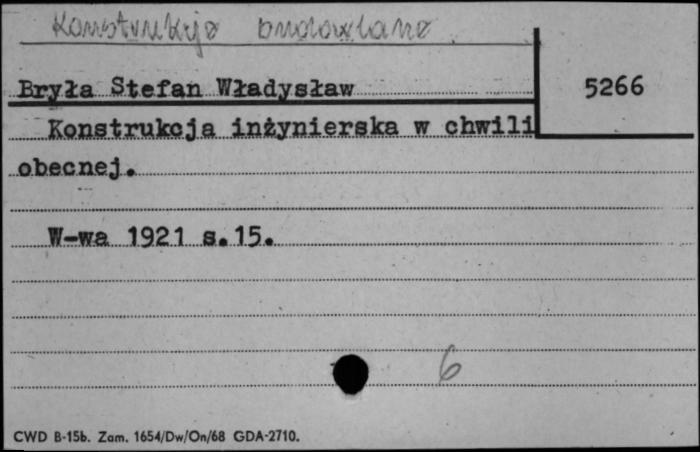 Konstrukcje budowlane
Bryła Stefan Władysław
5266
Konstrukcja inżynierska w chwili
obecnej.
W-wa 1921 s.15.
6
CWD B-15b. Zam. 1654/Dw/On/68 GDA-2710.